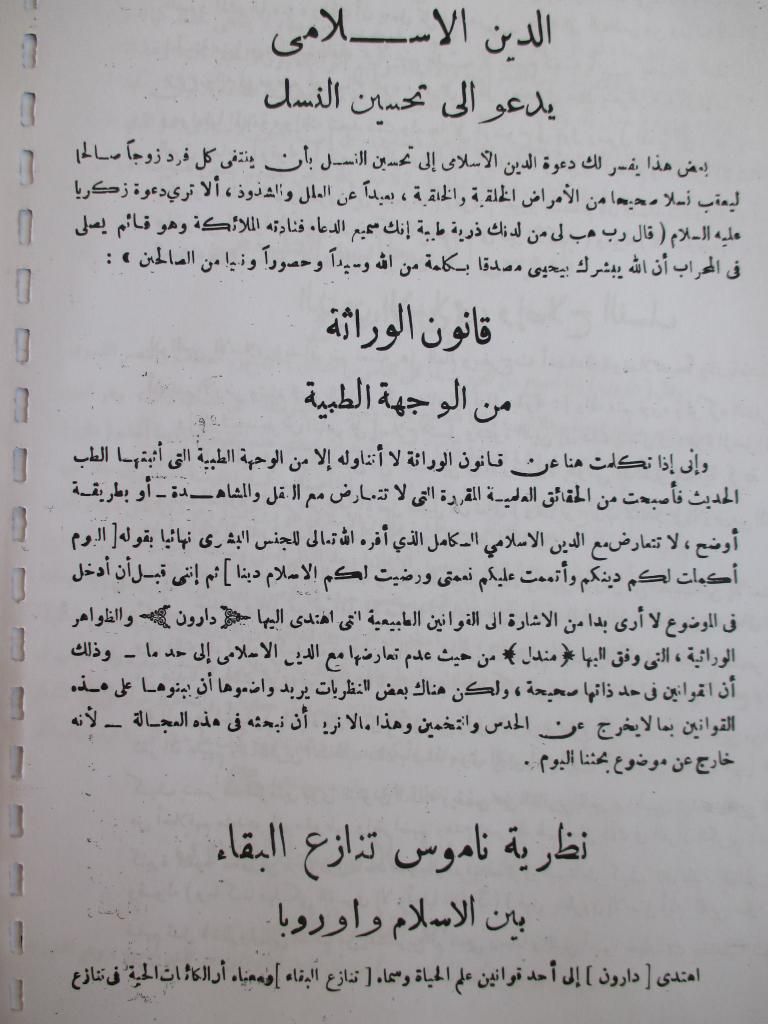 الدين الاســـلامى
يدعو الى تحسين النسل
بعض هذا يفسر لك دعوة الدين الاسلامى إلى تحسين النسل بأن ينتقى كل فرد زوجاً صالحا
ليعقب نسلا صحيحا من الأمراض الخلقية والخلقية ، بعيداً عن العلل والشذوذ ، ألا ترى دعوة زكريا
عليه السلام ( قال رب هب لى من لدنك ذرية طيبة إنك سميع الدعاء فنادته الملائكة وهو قائم يصلى
فى المحراب أن الله يبشرك بيحيى مصدقا بكلمة من الله وسيداً وحصوراً ونبيا من الصالحين » :
قانون الوراثة
من الوجهة الطبية
وإنى إذا تكلمت هنا عن قانون الوراثة لا أتناوله إلا من الوجهة الطبية التى أثبتها الطب
الحديث فأصبحت من الحقائق العلمية المقررة التى لا تتعارض مع العقل والمشاهدة ـ أو بطريقة
أوضح ، لا تتعارض مع الدين الاسلامي الكامل الذي أقره الله تعالى للجنس البشرى نهائيا بقوله [ اليوم
أكملت لكم دينكم وأتممت عليكم نعمتى ورضيت لكم الاسلام دينا ] ثم إننى قبل أن أدخل
فى الموضوع لا أرى بدا من الاشارة الى القوانين الطبيعية التى اهتدى اليها ﴿ دارون ﴾ والظواهر
الوراثية ، التى وفق اليها ﴿ مندل ﴾ من حيث عدم تعارضها مع الدين الاسلامى إلى حد ما ـ وذلك
أن القوانين فى حد ذاتها صحيحة ، ولكن هناك بعض النظريات يريد واضعوها أن يبنوها على هذه
القوانين بما لا يخرج عن الحدس والتخمين وهذا مالا نريد أن نبحثه فى هذه العجالة ـ لأنه
خارج عن موضوع بحثنا اليوم .
نظرية ناموس تنازع البقاء
بين الاسلام واوروبا
اهتدى [ دارون ] إلى أحد قوانين علم الحياة وسماه [ تنازع البقاء ] ومعناه أن الكائنات الحية فى تنازع